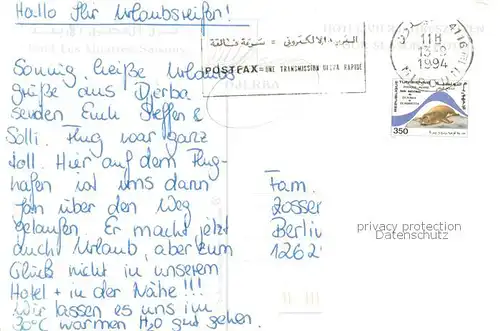 Hallo Ihr Urlaubsreifen!
البريد الالكتروني = سرعة فائقة
POSTFAX = UNE TRANSMISSION ULTRA RAPIDE
4116
11H
13-9
1994
350
DJERBA
Sonnig, heiße Urlaubs-
grüße aus Djerba
senden Euch Steffen &
Solli. Flug war ganz
toll. Hier auf dem Flug-
hafen ist uns dann
über den Weg
gelaufen. Er macht jetzt
auch Urlaub, aber zum
Glück nicht in unserem
Hotel + in der Nähe!!!
Wir lassen es uns im
30°C warmen H2O gut gehen.
Fam.
Zosser
Berlin
1262
privacy protection
Datenschutz